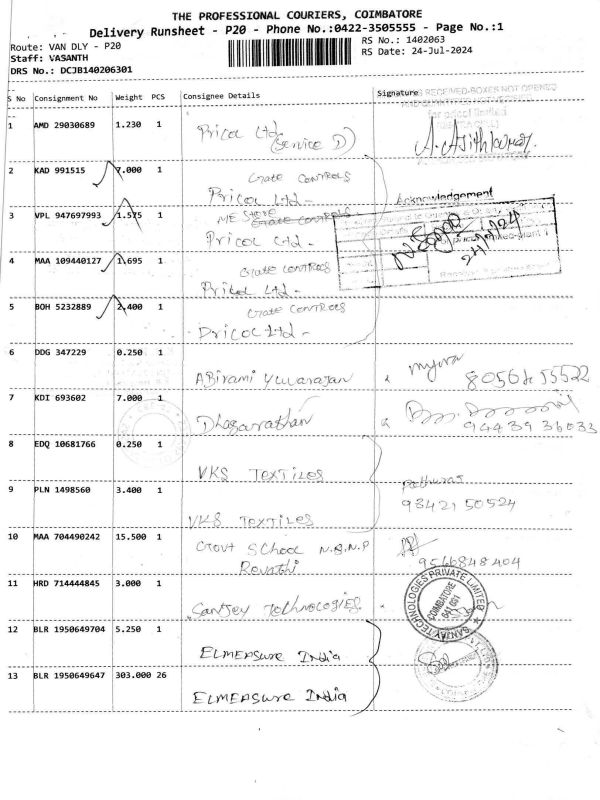 THE PROFESSIONAL COURIERS, COIMBATORE
Delivery Runsheet - P20 - Phone No.:0422-3505555 - Page No.:1
Route: VAN DLY - P20
Staff: VASANTH
DRS No.: DCJB140206301
RS No.: 1402063
RS Date: 24-Jul-2024
S No Consignment No Weight PCS Consignee Details Signature
RECEIVED-BOXES NOT OPENED
1 AMD 29030689 1.230 1 Pricol Ltd
(Service D)
A. Ajithkumar
2 KAD 991515 7.000 1 Gate CONTROLS
Pricol Ltd-
Acknowledgement
3 VPL 947697993 1.575 1 ME STORE
Pricol Ltd-
24/7/24
4 MAA 109440127 1.695 1 Gate CONTROLS
Pricol Ltd-
5 BOH 5232889 2.400 1 Gate CONTROLS
Pricol Ltd-
6 DDG 347229 0.250 1 Abirami Yuvarajan
7 KDI 693602 7.000 1
94439 36033
8 EDQ 10681766 0.250 1 VKS TEXTILES
9 PLN 1498560 3.400 1 VKS TEXTILES
93421 50524
10 MAA 704490242 15.500 1 Govt School N.G.N.P
Revathi
9566848404
11 HRD 714444845 3.000 1 Sanjey Technologies.
SANJAY TECHNOLOGIES PRIVATE LIMITED
COIMBATORE
641 031
12 BLR 1950649704 5.250 1 ELMEASURE India
13 BLR 1950649647 303.000 26 ELMEASURE India